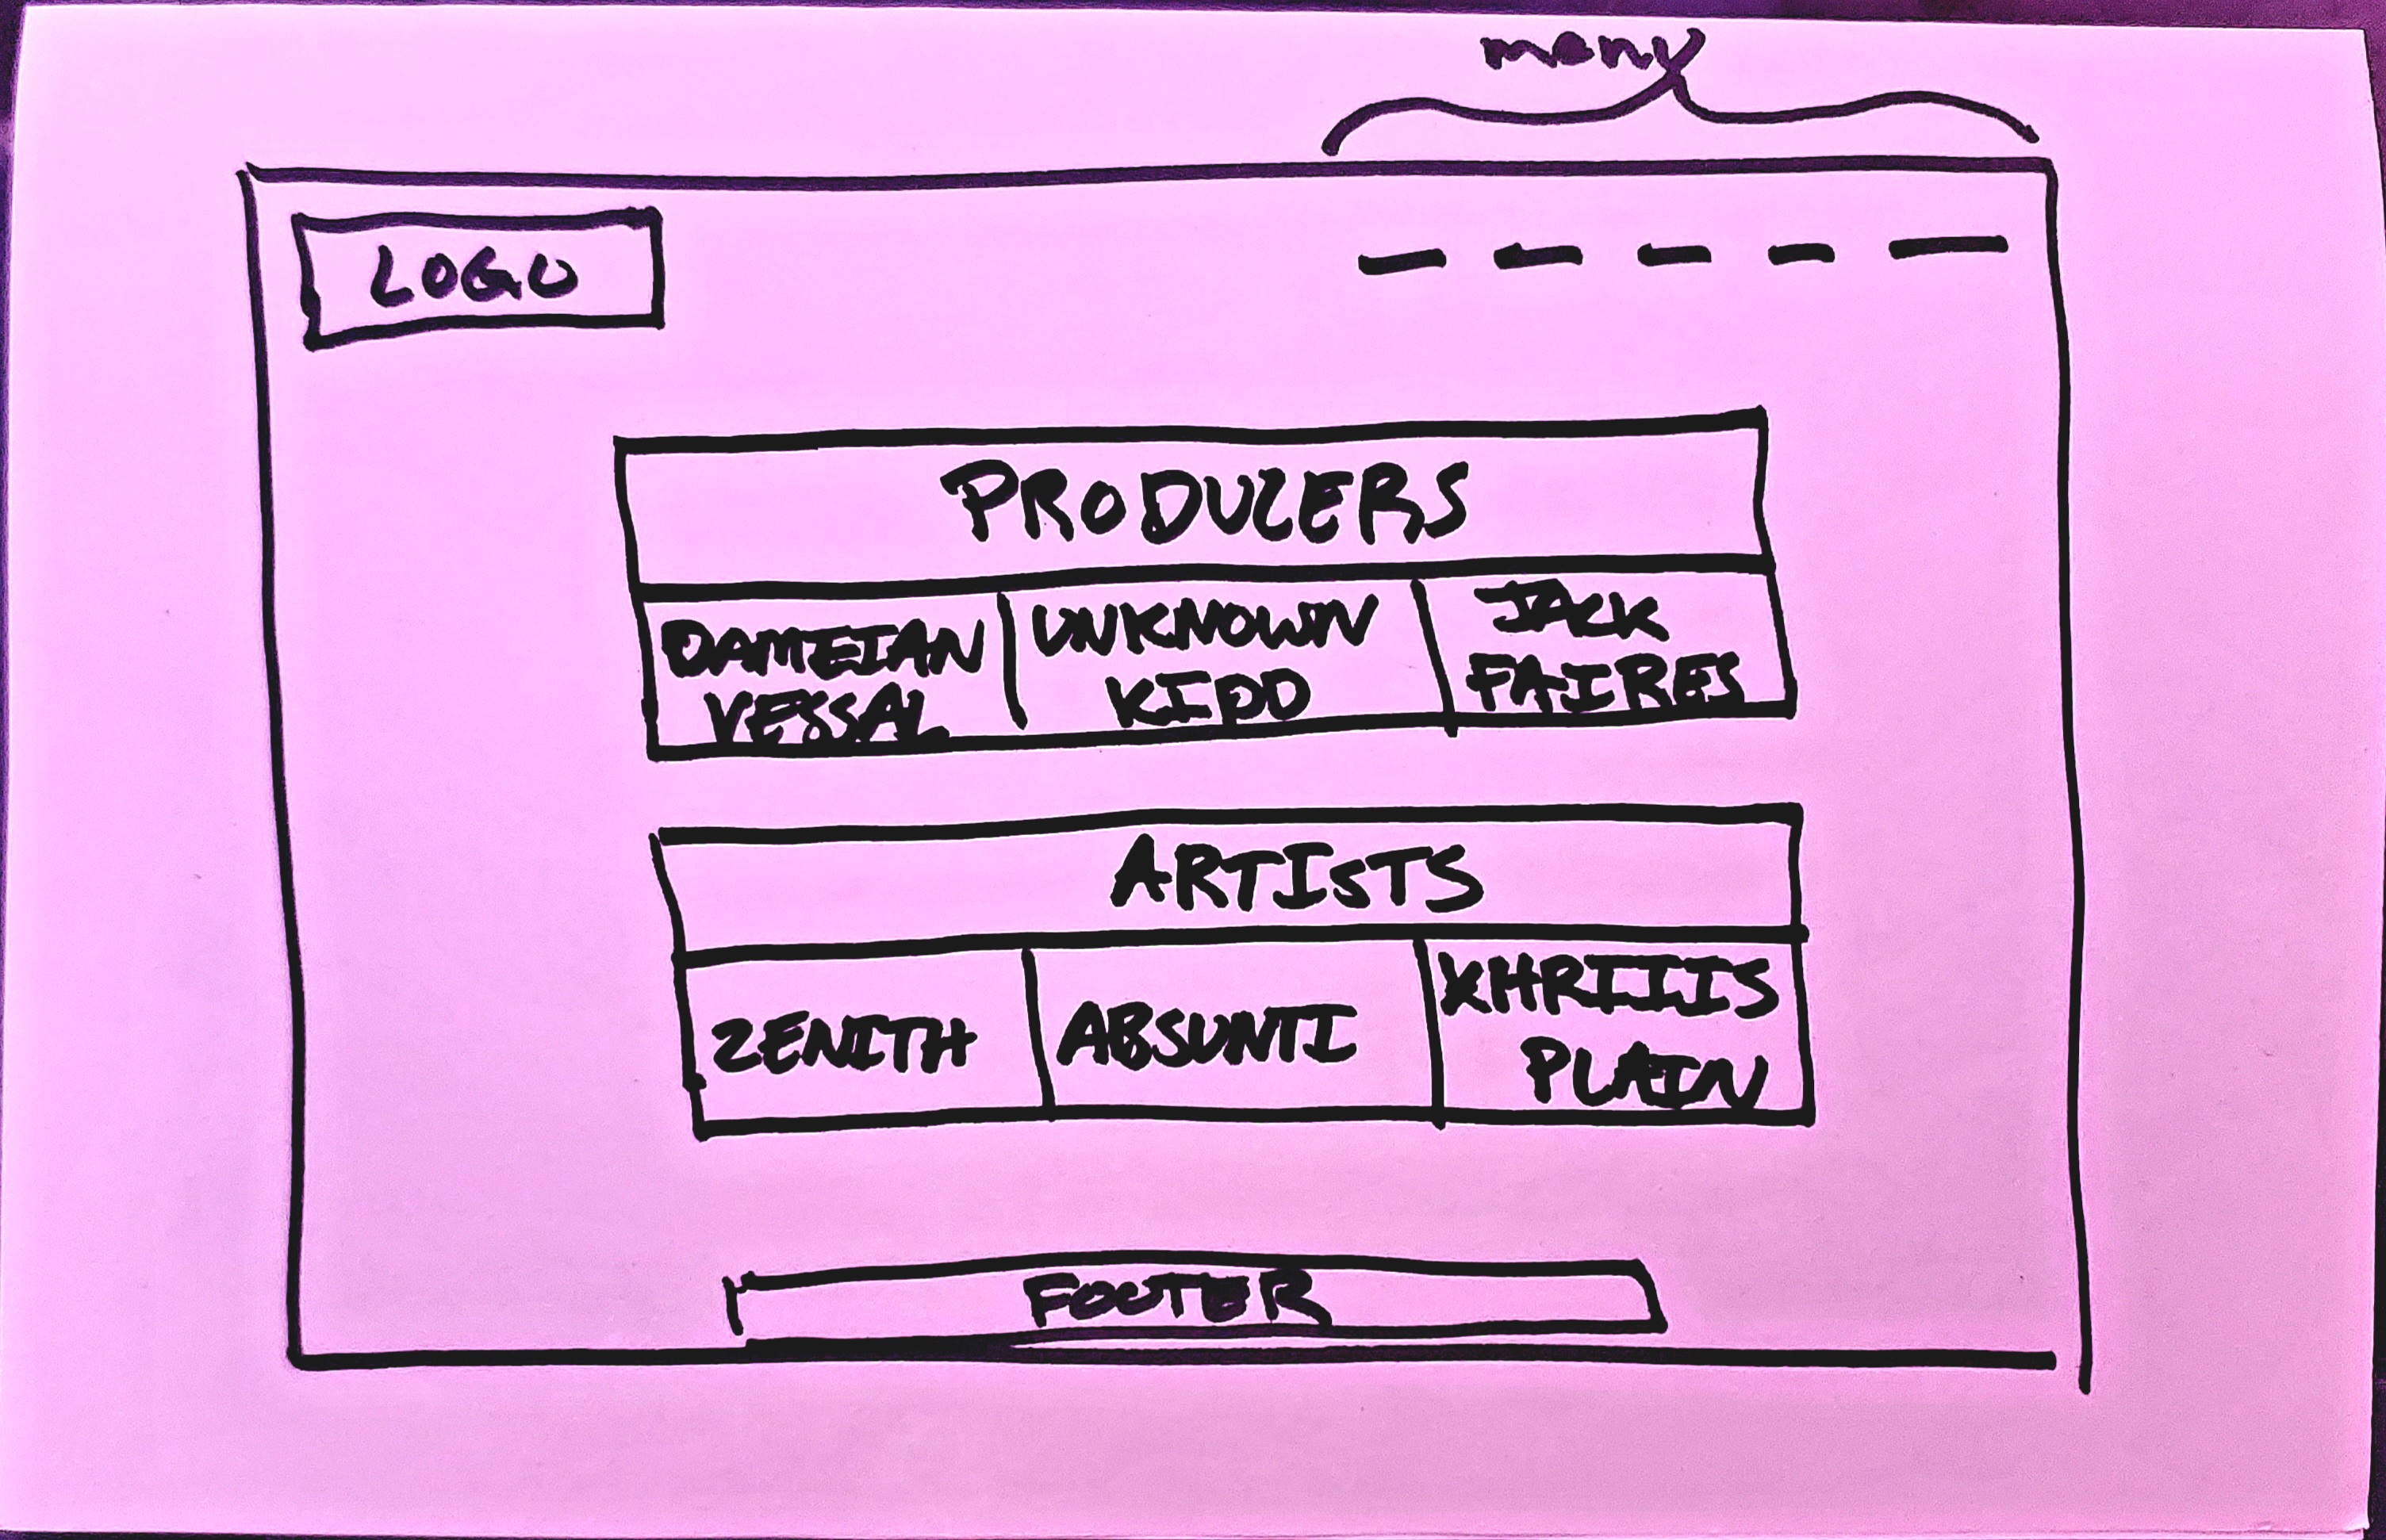 menu
LOGO
PRODUCERS
DAMEIAN
VESSAL
UNKNOWN
KIDD
JACK
FAIRES
ARTISTS
ZENITH
ABSUNTI
KHRIIIS
PLAIN
FOOTER